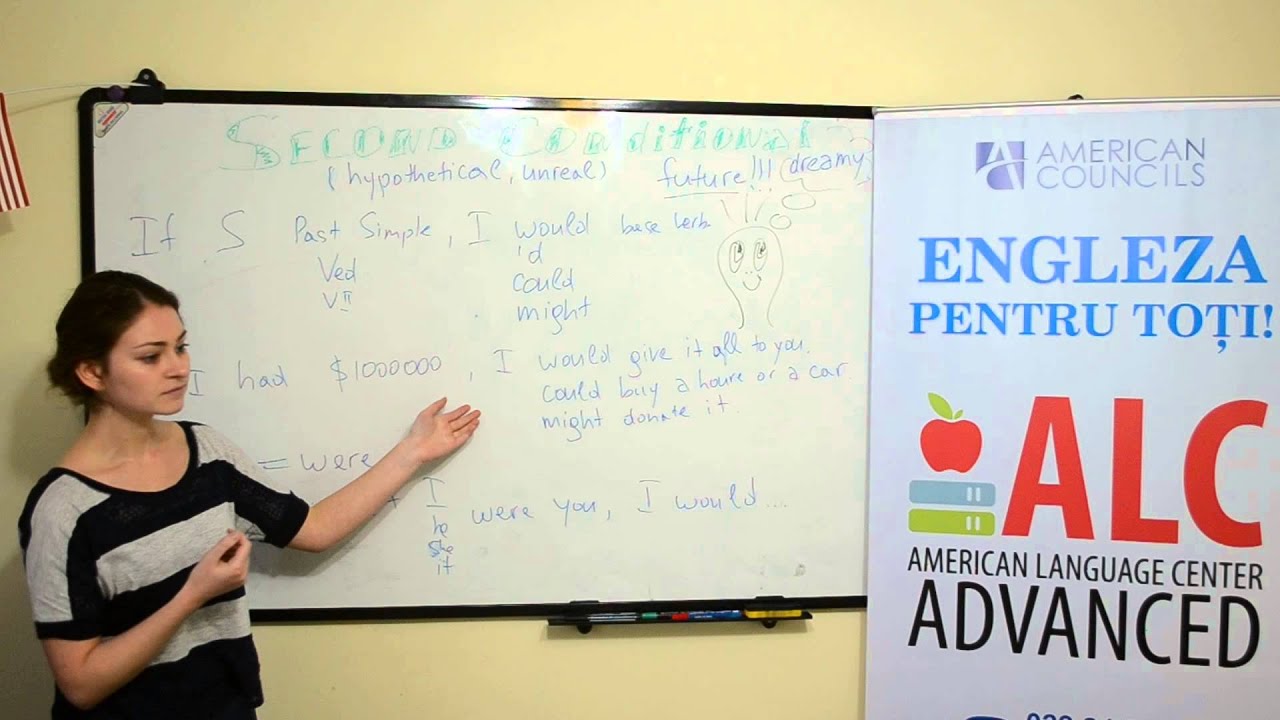 Second Conditional
(hypothetical, unreal) future!!! (dreamy)
If S Past Simple, I would base verb
Ved 'd
VII could
might
I had $1000000, I would give it all to you.
could buy a house or a car.
might donate it.
= were
I were you, I would...
he
she
it
AMERICAN
COUNCILS
ENGLEZA
PENTRU TOȚI!
ALC
AMERICAN LANGUAGE CENTER
ADVANCED